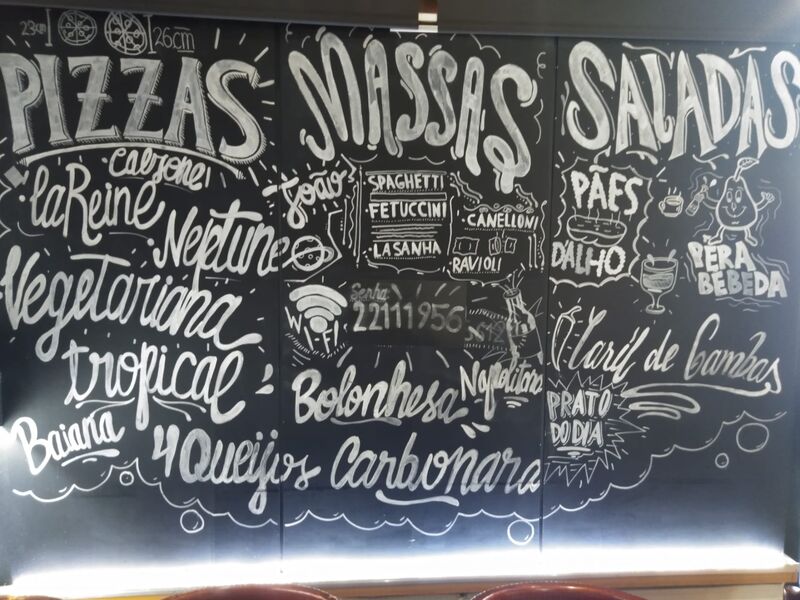 23cm 26cm
PIZZAS
calzone!
la Reine
Neptune
Vegetariana
tropical
Baiana
4 Queijos
MASSAS
João
SPAGHETTI
FETUCCINI
LASANHA
CANELLONI
RAVIOLI
WI-FI
Senha:
22111956
Bolonhesa
Napolitana
Carbonara
SALADAS
PÃES
D'ALHO
PÊRA
BEBEDA
Caril de Gambas
PRATO
DO DIA